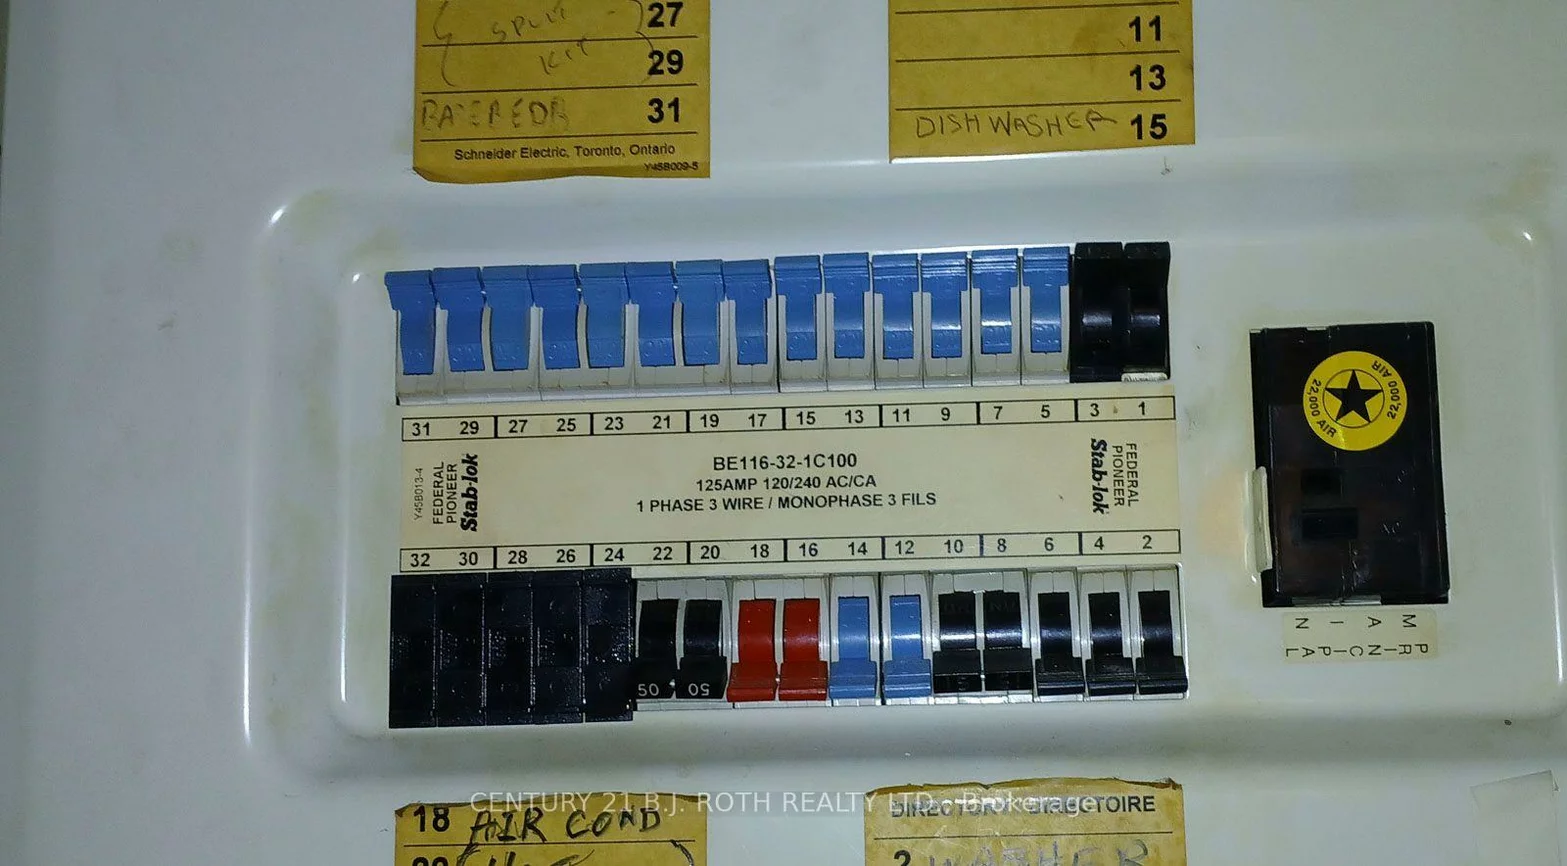 SPLIT 27
KIT 29
31
Schneider Electric, Toronto, Ontario
Y45B009-5
11
13
DISHWASHER 15
22,000 AIR
22,000 AIR
31 29 27 25 23 21 19 17 15 13 11 9 7 5 3 1
Y45B013-4
FEDERAL
PIONEER
Stab-lok
BE116-32-1C100
125AMP 120/240 AC/CA
1 PHASE 3 WIRE / MONOPHASE 3 FILS
FEDERAL
PIONEER
Stab-lok
32 30 28 26 24 22 20 18 16 14 12 10 8 6 4 2
50 50
MAIN
PRINCIPAL
18 AIR COND
CENTURY 21 B.J. ROTH REALTY LTD., Brokerage
DIRECTORY DIRECTOIRE
2 WASHER